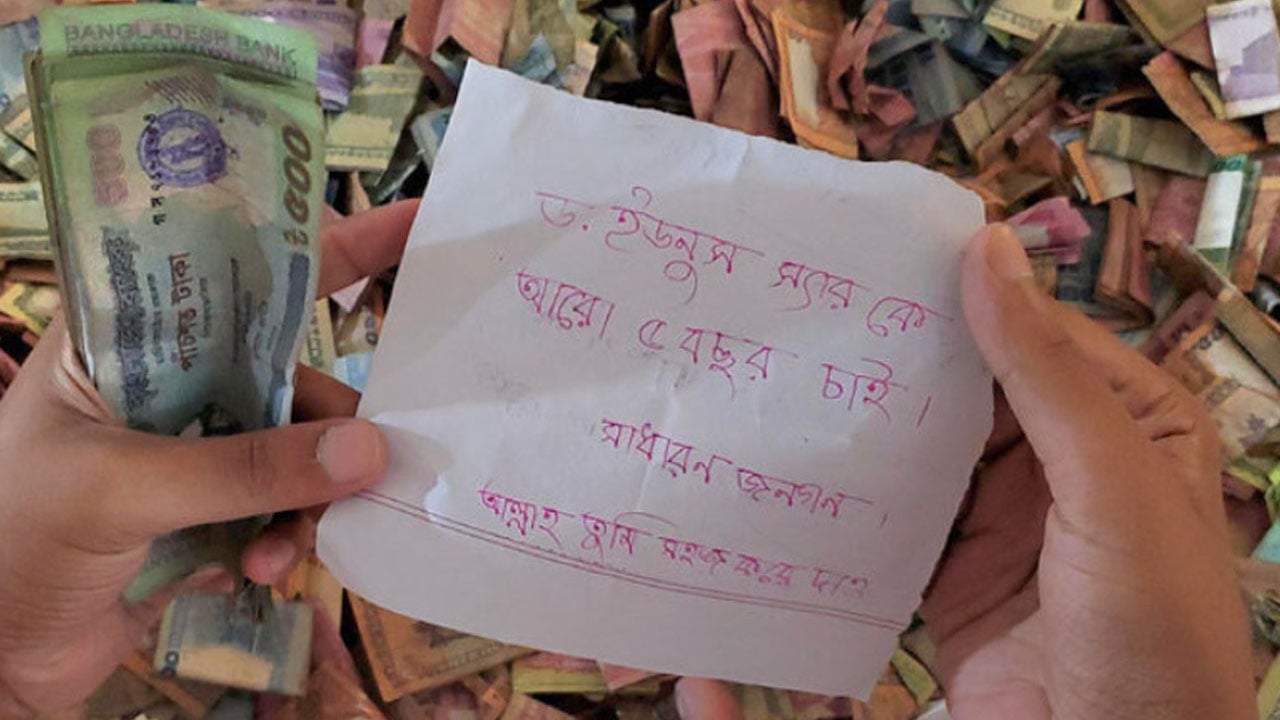 BANGLADESH BANK
৫০০
৳500
পাঁচশত টাকা
ড. ইউনুস স্যার কে
আরো ৫ বছর চাই।
সাধারন জনগন।
আল্লাহ তুমি সহজ করে দাও